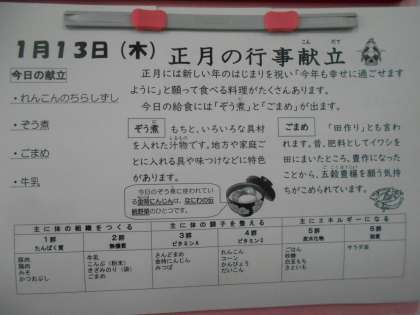 1月13日（木）正月の行事献立
こん だて
今日の献立
・れんこんのちらしずし
・ぞう煮
・ごまめ
・牛乳
正月には新しい年のはじまりを祝い「今年も幸せに過ごせます
ように」と願って食べる料理がたくさんあります。
今日の給食には「ぞう煮」と「ごまめ」が出ます。
ぞう煮 もともと、いろいろな具材
を入れた汁物です。地方や家庭ご
とに入れる具や味つけなどに特色
があります。
今日のぞう煮に使われている
金時にんじんは、なにわの伝
統野菜のひとつです。
ごまめ 「田作り」とも言わ
れます。昔、肥料としてイワシを
田にまいたところ、豊作になった
ことから、五穀豊穣を願う気持
ちがこめられています。
主に体の組織をつくる 主に体の調子を整える 主にエネルギーになる
1群 2群 3群 4群 5群 6群
たんぱく質 無機質 ビタミンA ビタミンC 炭水化物 脂質
豚肉
鶏肉
みそ
かつおぶし
牛乳
こんぶ（粉末）
きざみのり（袋）
ごまめ
さんどまめ
金時にんじん
みつば
れんこん
コーン
かんぴょう
だいこん
ごはん
砂糖
白玉もち
さといも
サラダ油